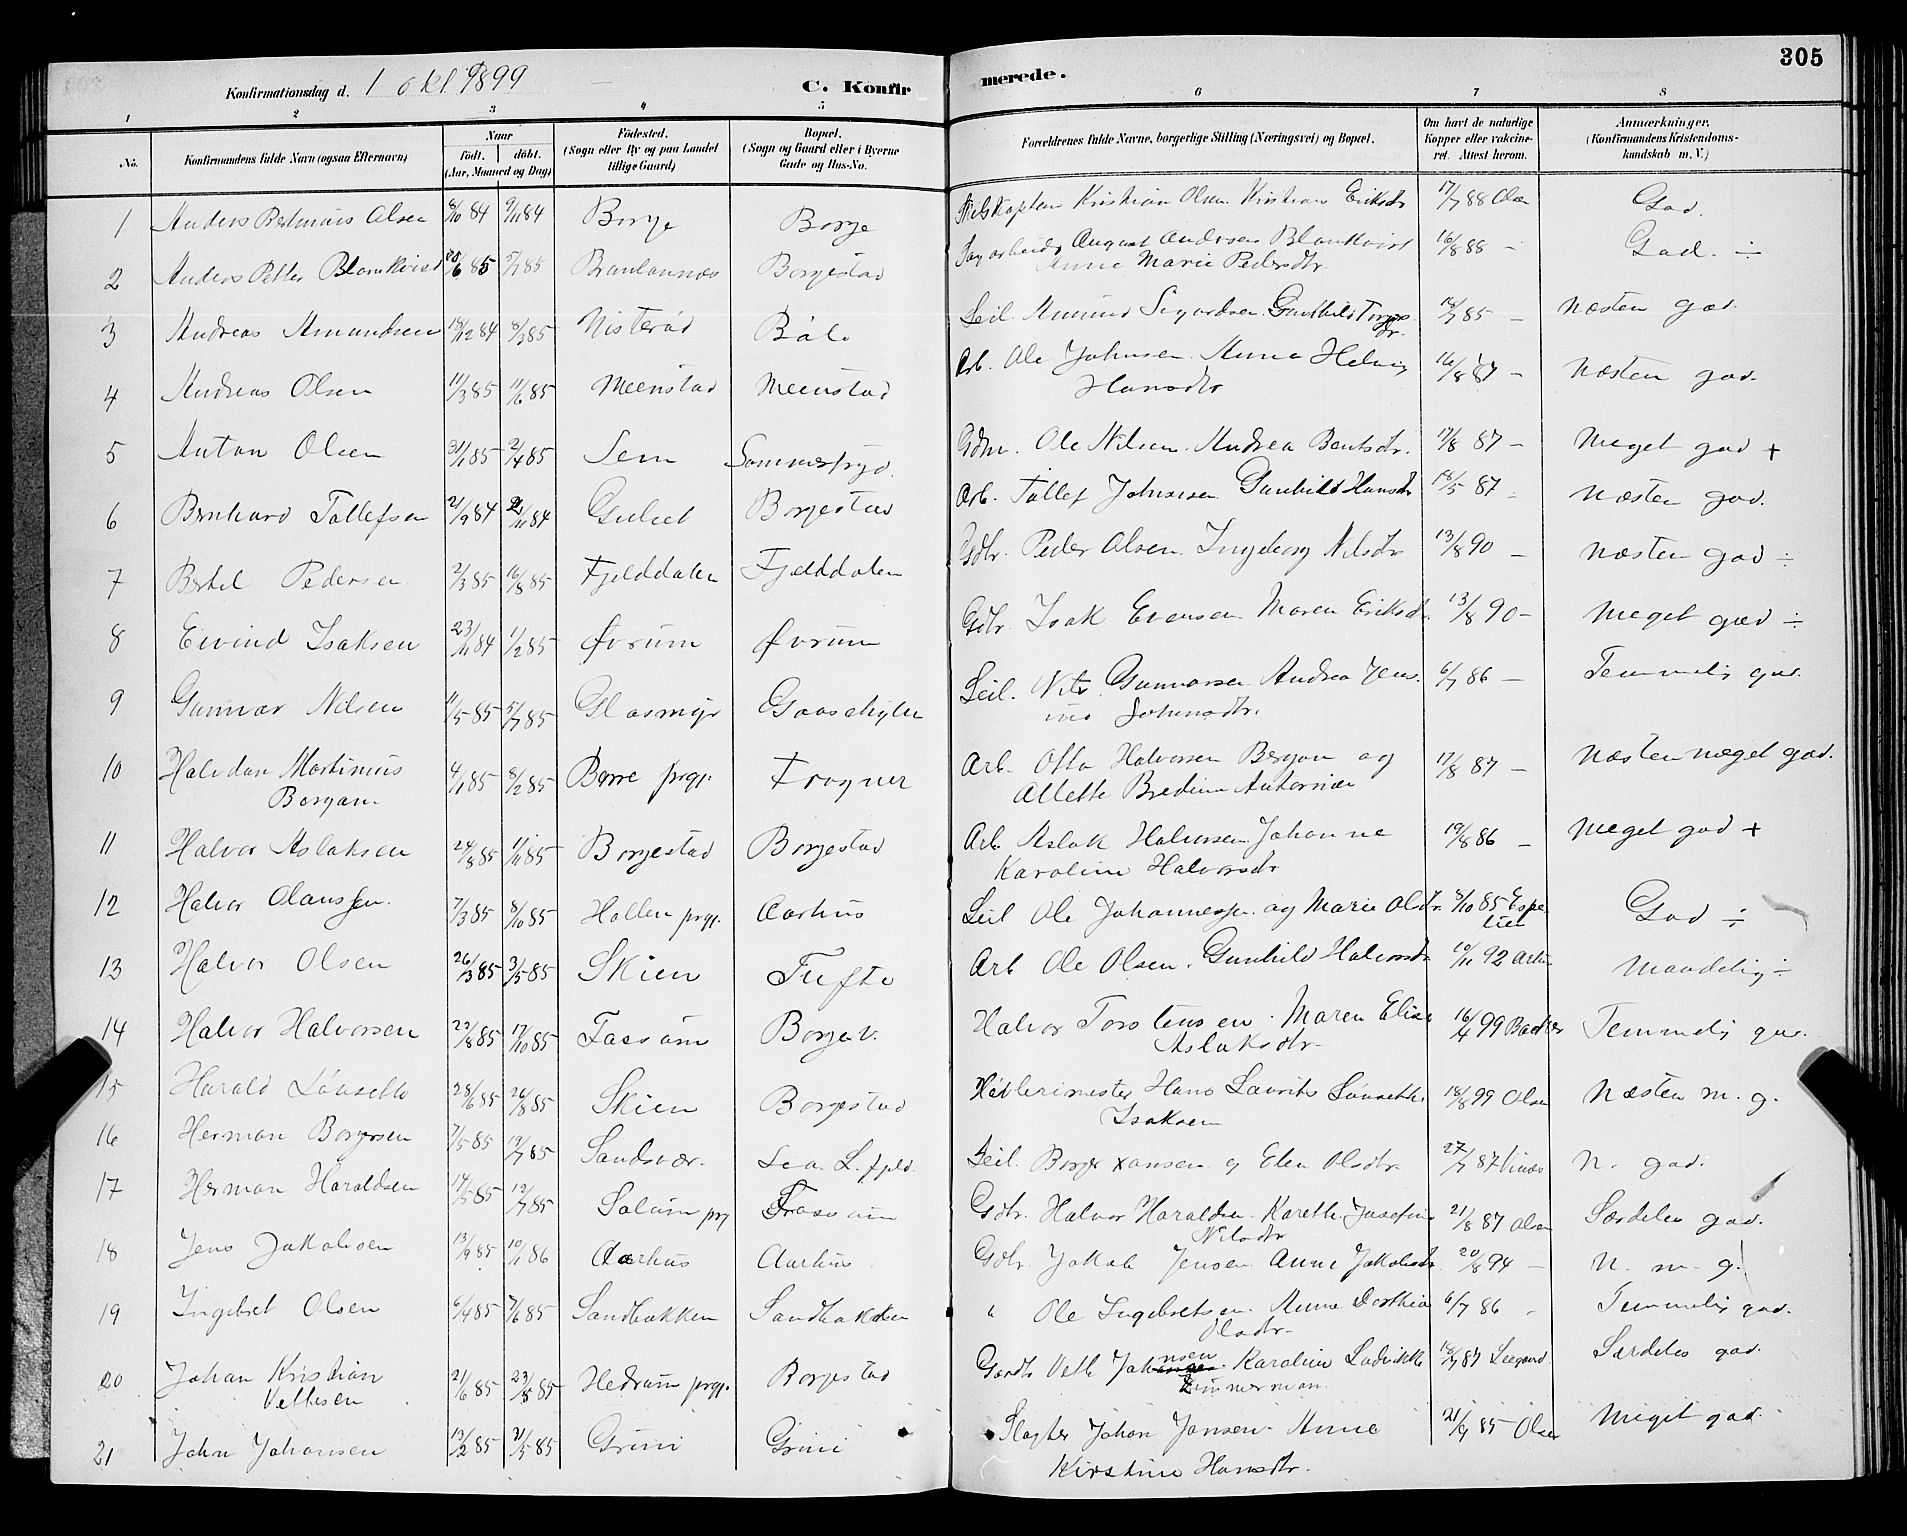 305
Konfirmationsdag d. 1 okt 1899
C. Konfirmerede.
1 2 3 4 5 6 7 8
No.
Konfirmandens fulde Navn (ogsaa Efternavn)
Naar
födt. döbt.
(Aar, Maaned og Dag)
Födested.
(Sogn eller By og paa Landet
tillige Gaard)
Bopæl.
(Sogn og Gaard eller i Byerne
Gade og Hus-No.
Forældrenes fulde Navne, borgerlige Stilling (Næringsvei) og Bopæl.
Om havt de naturlige
Kopper eller vakcine-
ret. Attest herom.
Anmærkninger.
(Konfirmandens Kristendoms-
kundskab m. V.)
1 Anders Olsen 8/10 84 9/11 84 Borge Borge Kristian Olsen Eriksdr 17/7 88 Olsen God.
2 Anders Petter Blomkvist 6 85 5/7 85 Borgestad August Andersen Blomkvist 16/8 88 - God. ÷
Anne Marie Pedersdtr.
3 Andreas Amundsen 18/12 84 8/3 85 Nisterød Böle Seil. Amund Sigurdsen Gunhild 18/7 85 - Næsten god.
4 Andreas Olsen 11/3 85 11/6 85 Meenstad Meenstad Arb. Ole Johnsen. Anne Helvig 16/8 87 - Næsten god.
Hansdtr
5 Anton Olsen 31/1 85 2/4 85 Sem Sommerfryd. Gdm. Ole Nilsen. Andrea Bentsdr. 17/8 87 - Meget god +
6 Bernhard Tollefsen 21/9 84 84 Gulset Borgestad Arb. Tollef Johnsen Gunhild Hansdr 18/5 87 - Næsten god.
7 Bertel Pedersen 2/3 85 16/8 85 Fjelddalen Fjelddalen Gdbr. Peder Olsen. Ingeborg Nilsdtr 13/8 90 - Næsten god ÷
8 Eivind Isaksen 23/11 84 1/2 85 Øvrum Øvrum Gdbr. Isak Evensen. Maren Eriksdr. 13/8 90 - Meget god ÷
9 Gunnar Nilsen 11/5 85 5/7 85 Glasmyr Gaasehylen Seil. Nils Gunnarsen Andrea Jen- 6/7 86 - Temmelig god.
ine Johnsdtr.
10 Halvdan Martinius 4/1 85 8/2 85 Borre prgj. Frogner Arb. Otto Halvorsen Borgan og 17/8 87 - Næsten meget god.
Borgan. Allette Bredine
11 Halvor Aslaksen 24/8 85 1/11 85 Borgestad Borgestad Arb. Aslak Halvorsen Johanne 19/8 86 - Meget god +
Karoline Halvorsdtr
12 Halvor Olaussen. 7/3 85 8/10 85 Hollen prgj. Aarhus Seil Ole Johannesen og Marie Olsdtr. 8/10 85 Espe God ÷
lien
13 Halvor Olsen 26/3 85 3/5 85 Skien Tufte Arb Ole Olsen. Gunhild Halvorsdr 10/11 92 Maadelig ÷
14 Halvor Halvorsen 22/8 85 17/10 85 Fossum Borge v. Halvor Torstensen. Maren Elise 16/4 99 Temmelig god.
Aslaksdtr.
15 Harald Lönseth 28/6 85 26/8 85 Skien Borgestad Høvlerimester Hans Laurits Lönseth. 18/8 99 Olsen Næsten m. g.
Isaksen
16 Herman Borgersen 7/5 85 19/7 85 Sandsvær. Borger Hansen og Elen Olsdtr. 27/7 87 N. god.
17 Herman Haraldsen 14/5 85 12/7 85 Solum prgj Fossum Gdbr. Halvor Haraldsen. Karethe Josefine 21/8 87 Olsen Særdeles god.
Nilsdtr
18 Jens Jakobsen 13/9 85 10/1 86 Aarhus Aarhus Gdbr. Jakob Jensen Anne Jakobsdr 20/8 94 - N. m. g.
19 Ingebret Olsen 6/4 85 7/6 85 Sandbakken Sandbakken " Ole Ingebretsen. Anne Dorthea 6/7 86 " Temmelig god.
Olsdtr.
20 Johan Kristian 21/6 85 23/8 85 Hedrum prgj. Borgestad Vetle Johnsen Karoline Lodvikke 18/7 87 Særdeles god.
Vetlesen Zimmerman.
21 John Johansen 13/2 85 21/5 85 Grini Grini Slagter Johan Jansen. Anne 21/9 85 Olsen Meget god
Kirstine Hansdtr.